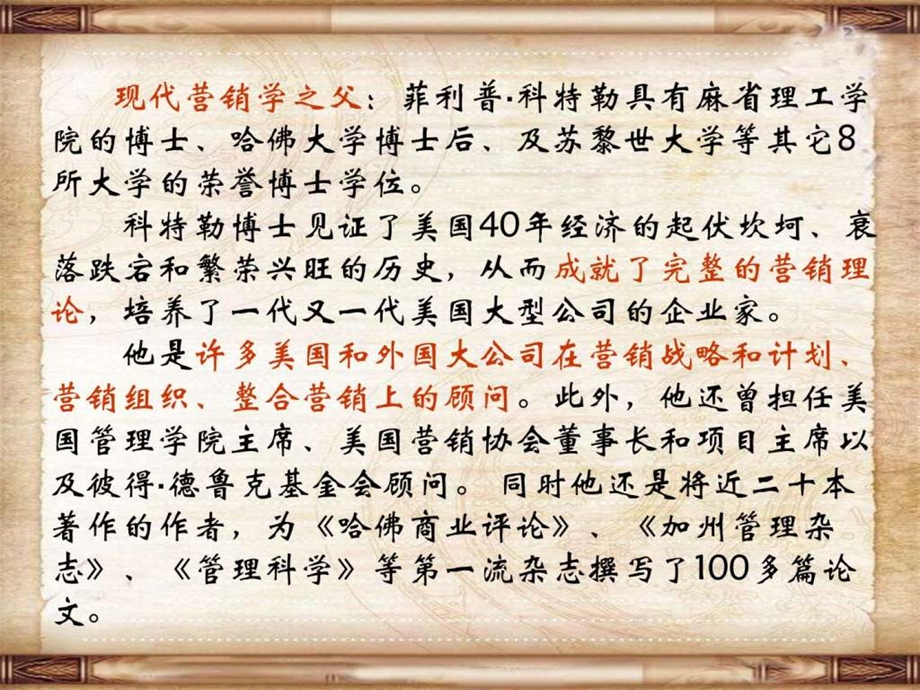 现代营销学之父：菲利普·科特勒具有麻省理工学
院的博士、哈佛大学博士后、及苏黎世大学等其它8
所大学的荣誉博士学位。
科特勒博士见证了美国40年经济的起伏坎坷、衰
落跌宕和繁荣兴旺的历史，从而成就了完整的营销理
论，培养了一代又一代美国大型公司的企业家。
他是许多美国和外国大公司在营销战略和计划、
营销组织、整合营销上的顾问。此外，他还曾担任美
国管理学院主席、美国营销协会董事长和项目主席以
及彼得·德鲁克基金会顾问。 同时他还是将近二十本
著作的作者，为《哈佛商业评论》、《加州管理杂
志》、《管理科学》等第一流杂志撰写了100多篇论
文。